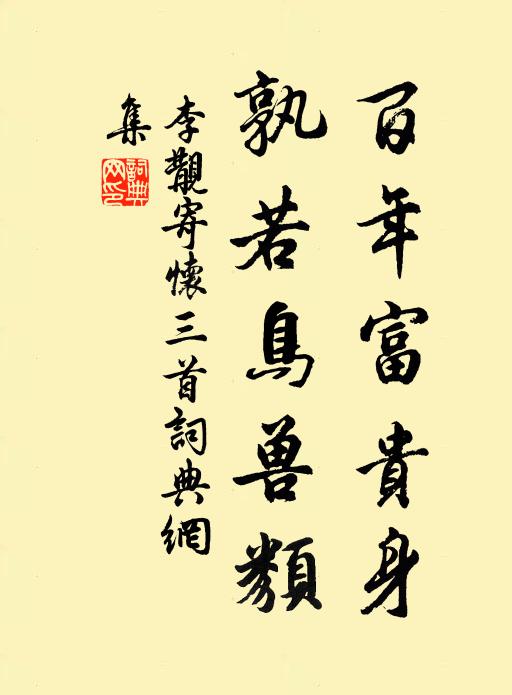 百年富貴身
孰若鳥兽類
李覯寄懷三首詞典網
集
詞典網印